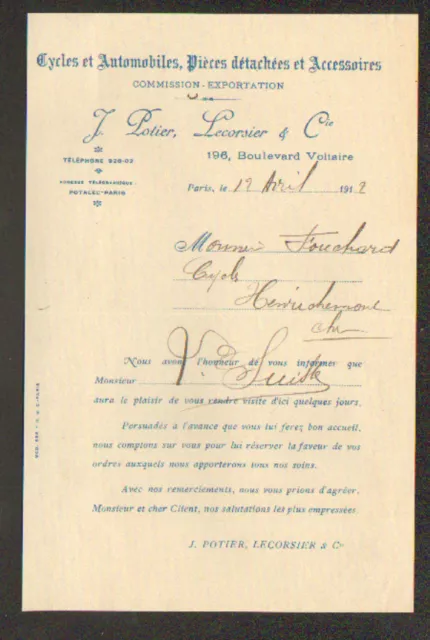 Cycles et Automobiles, Pièces détachées et Accessoires
COMMISSION - EXPORTATION
J. Potier, Lecorsier & Cie
196, Boulevard Voltaire
TÉLÉPHONE 928-02
ADRESSE TÉLÉGRAPHIQUE
POTALEC-PARIS
Paris, le 12 Avril 1912
Monsieur Fouchard
Cycles
Henrichemont
Cher
Nous avons l'honneur de vous informer que
Monsieur
aura le plaisir de vous rendre visite d'ici quelques jours.
Persuadés à l'avance que vous lui ferez bon accueil,
nous comptons sur vous pour lui réserver la faveur de vos
ordres auxquels nous apporterons tous nos soins.
Avec nos remerciements, nous vous prions d'agréer,
Monsieur et cher Client, nos salutations les plus empressées.
J. POTIER, LECORSIER & Cie